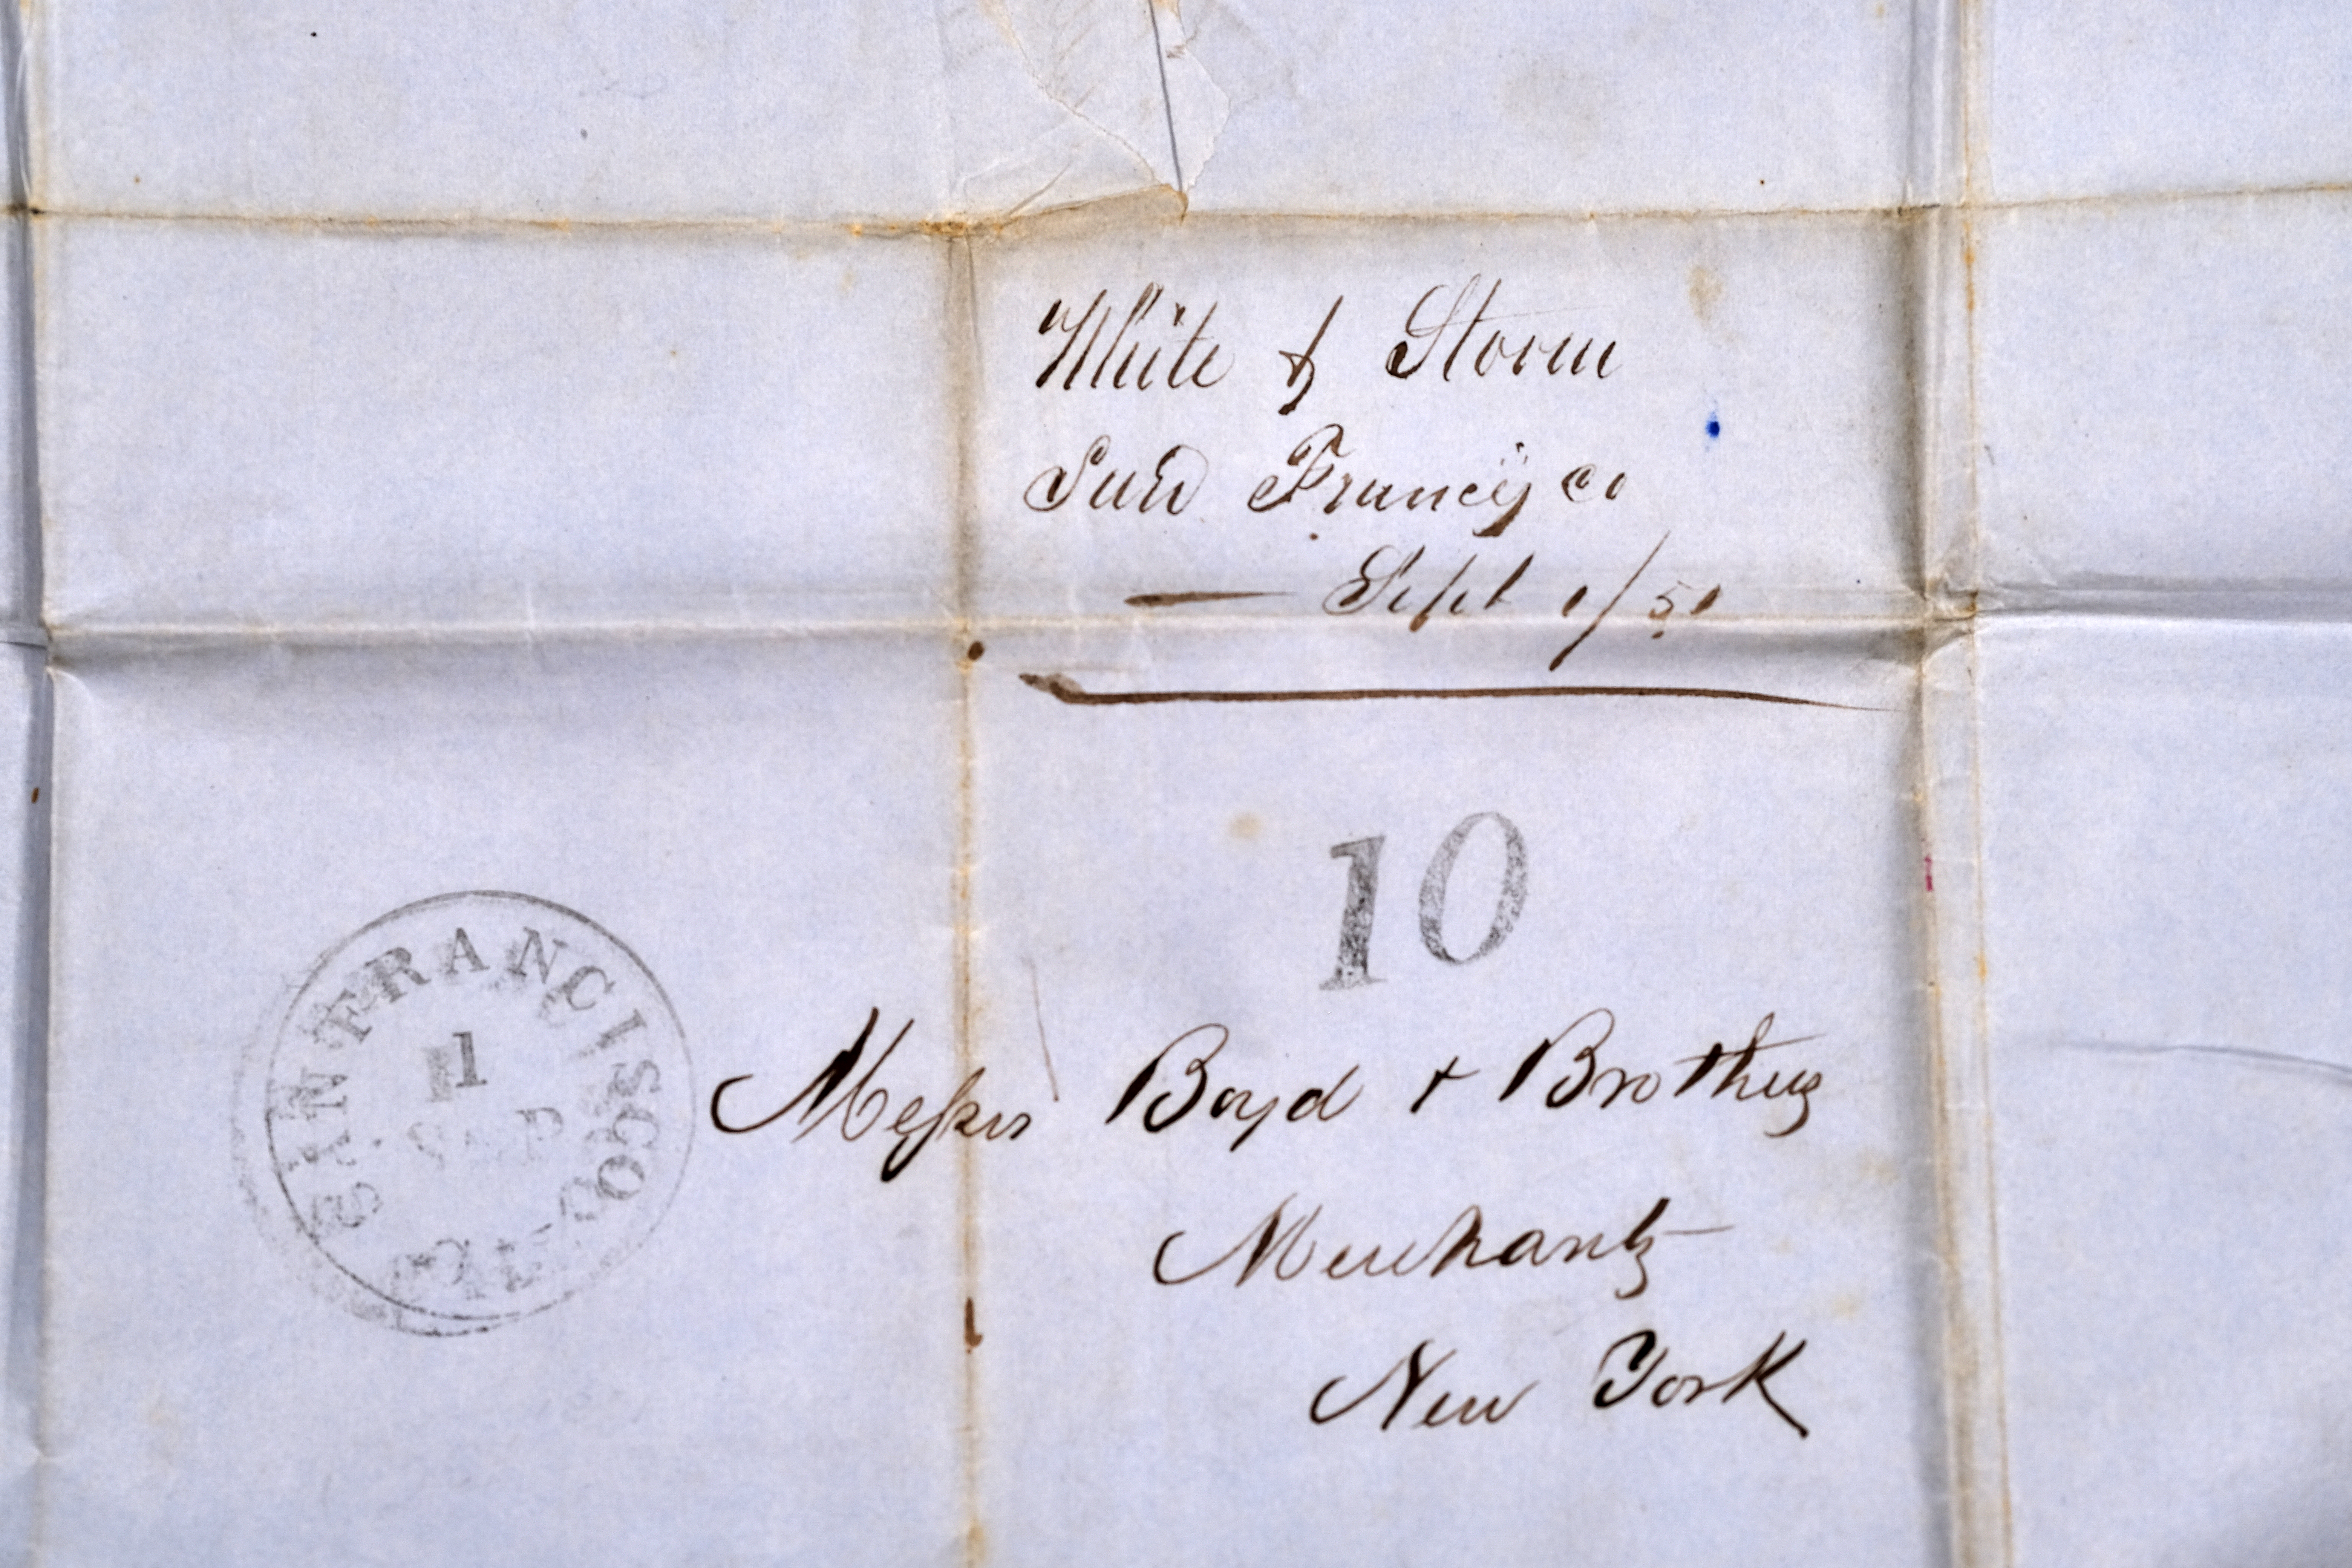 White & Storm
San Francisco
Sept 1/51
10
SAN FRANCISCO CAL.
1
SEP
Messrs Boyd + Brothers
Merchants
New York